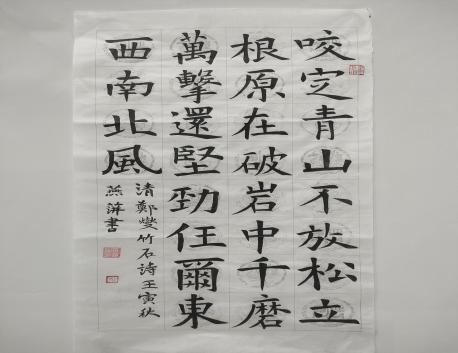 咬定青山不放松立
根原在破岩中千磨
萬擊還堅勁任爾東
西南北風
清鄭燮竹石詩壬寅秋
燕萍書